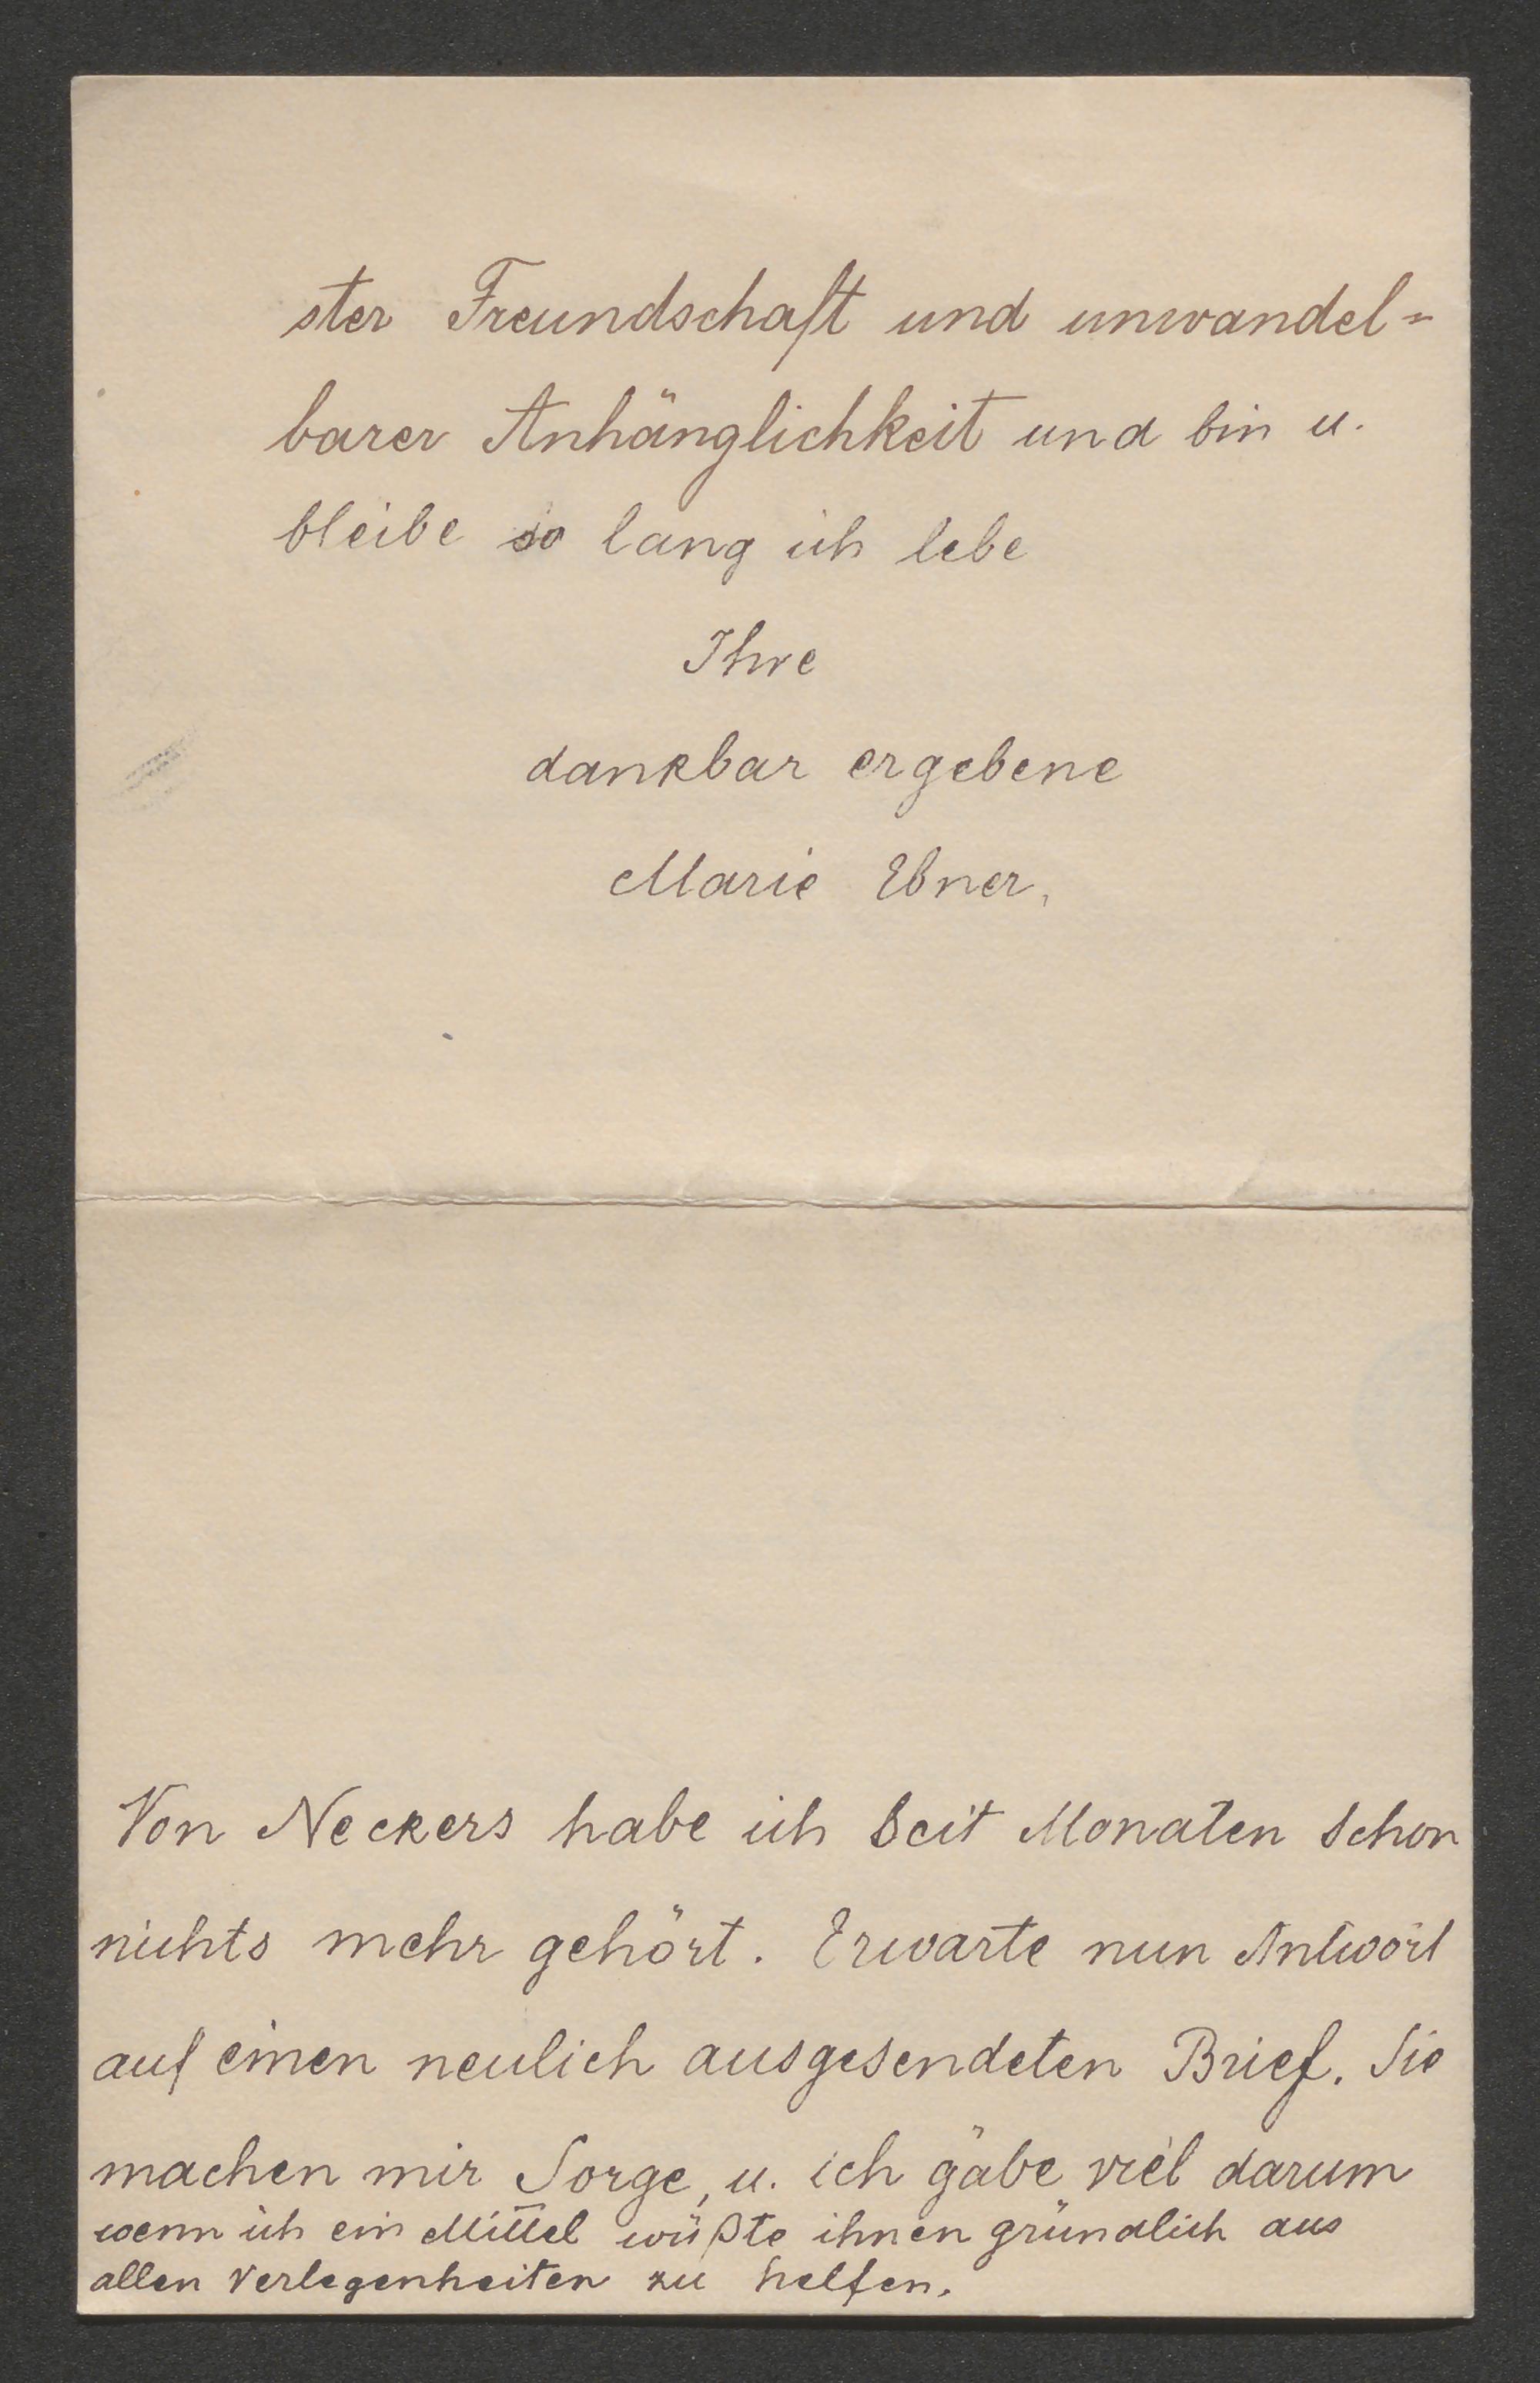 ster Freundschaft und unwandel=
barer Anhänglichkeit und bin u.
bleibe so lang ich lebe
Ihre
dankbar ergebene
Marie Ebner,
Von Neckers habe ich seit Monaten schon
nichts mehr gehört. Erwarte nun Antwort
auf einen neulich ausgesendeten Brief. Sie
machen mir Sorge, u. ich gäbe viel darum
wenn ich ein Mittel wüßte ihnen gründlich aus
allen Verlegenheiten zu helfen.